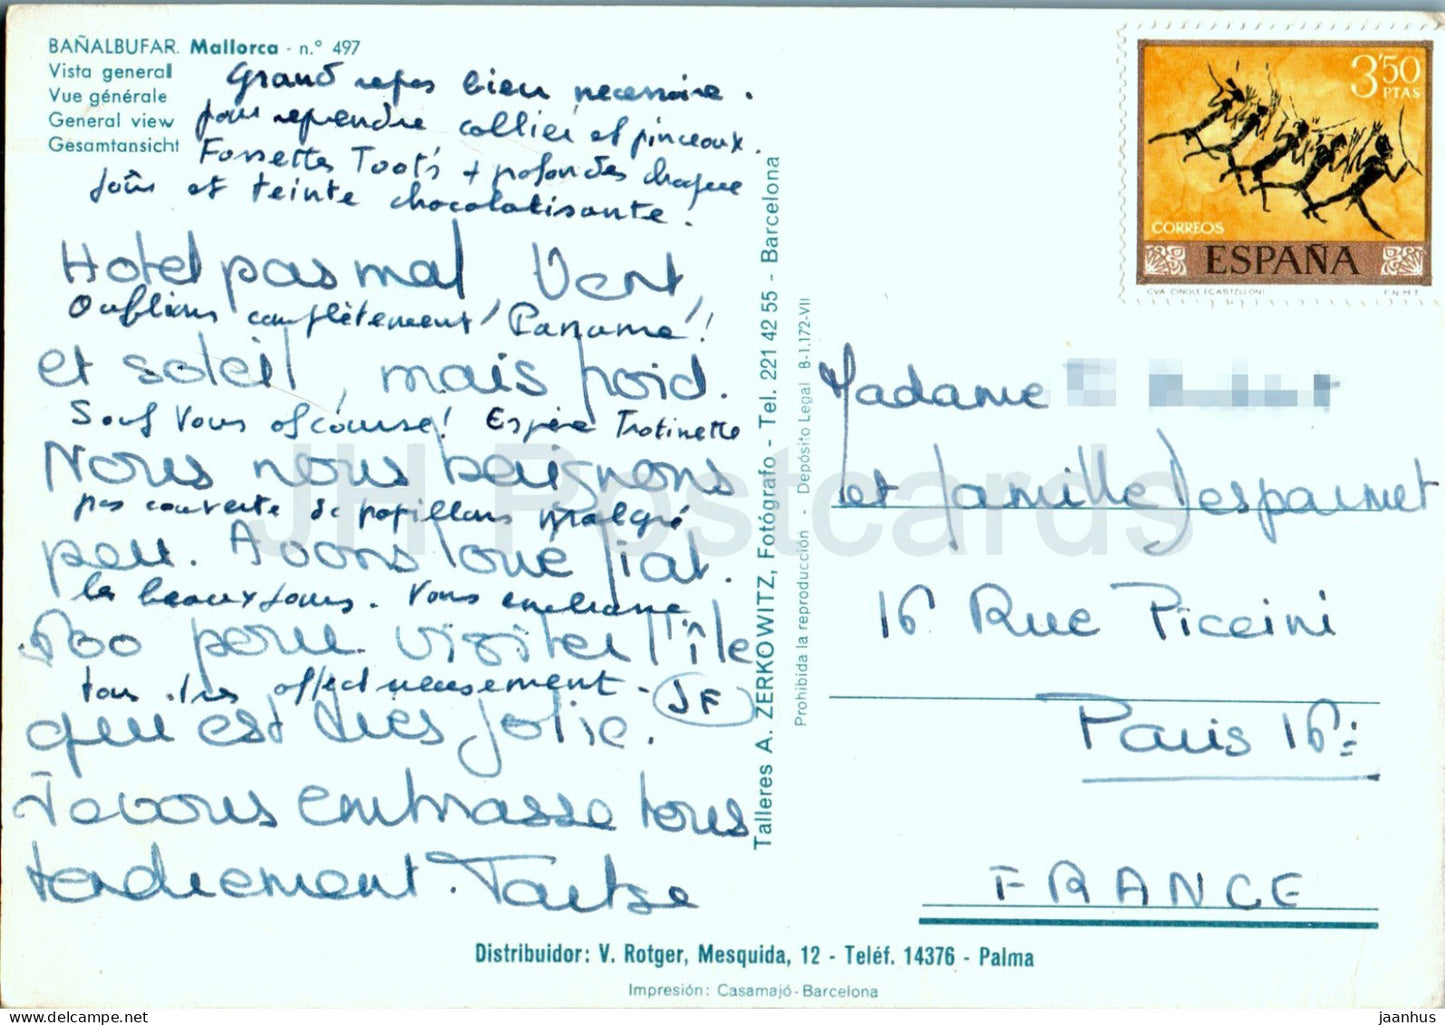 BAÑALBUFAR. Mallorca - n.° 497
Vista general
Vue générale
General view
Gesamtansicht
Grand repos bien nécessaire.
pour reprendre collier et pinceaux.
Fossettes Toots + profondes chaque
jour et teinte chocolatisante.
Hotel pas mal, Vent,
Oublions complètement "Paname"!
et soleil, mais froid.
Sauf vous of course! Espère Trotinette
Nous nous baignons
pas couverte de papillons malgré
peu. Avons loué fiat.
les beaux jours. Vous embrasse
600 pour visiter l'île
tous très affectueusement - JF
qui est très jolie.
Je vous embrasse tous
tendrement. Tantse
Talleres A. ZERKOWITZ, Fotógrafo - Tel. 221 42 55 - Barcelona
Prohibida la reproducción - Depósito Legal B-1.172-VII
3'50
PTAS
CORREOS
ESPAÑA
CVA. CINGLE (CASTELLON)
F.N.M.T.
Madame
et famille Despaumet
16 Rue Piccini
Paris 16e
FRANCE
Distribuidor: V. Rotger, Mesquida, 12 - Teléf. 14376 - Palma
Impresión: Casamajó - Barcelona
JH Postcards
jaanhus.com